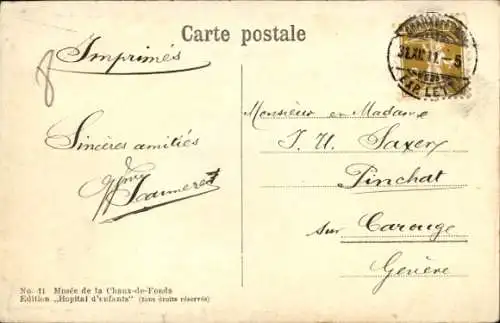 Carte postale
Imprimés
8
31.XII.11.-5
EXP. LETT.
Sincères amitiés
Jeanneret
Monsieur en Madame
J. U. Saxer
Pinchat
sur Carouge
Genève
No. 11 Musée de la Chaux-de-Fonds
Edition „Hopital d'enfants" (tous droits réservés)